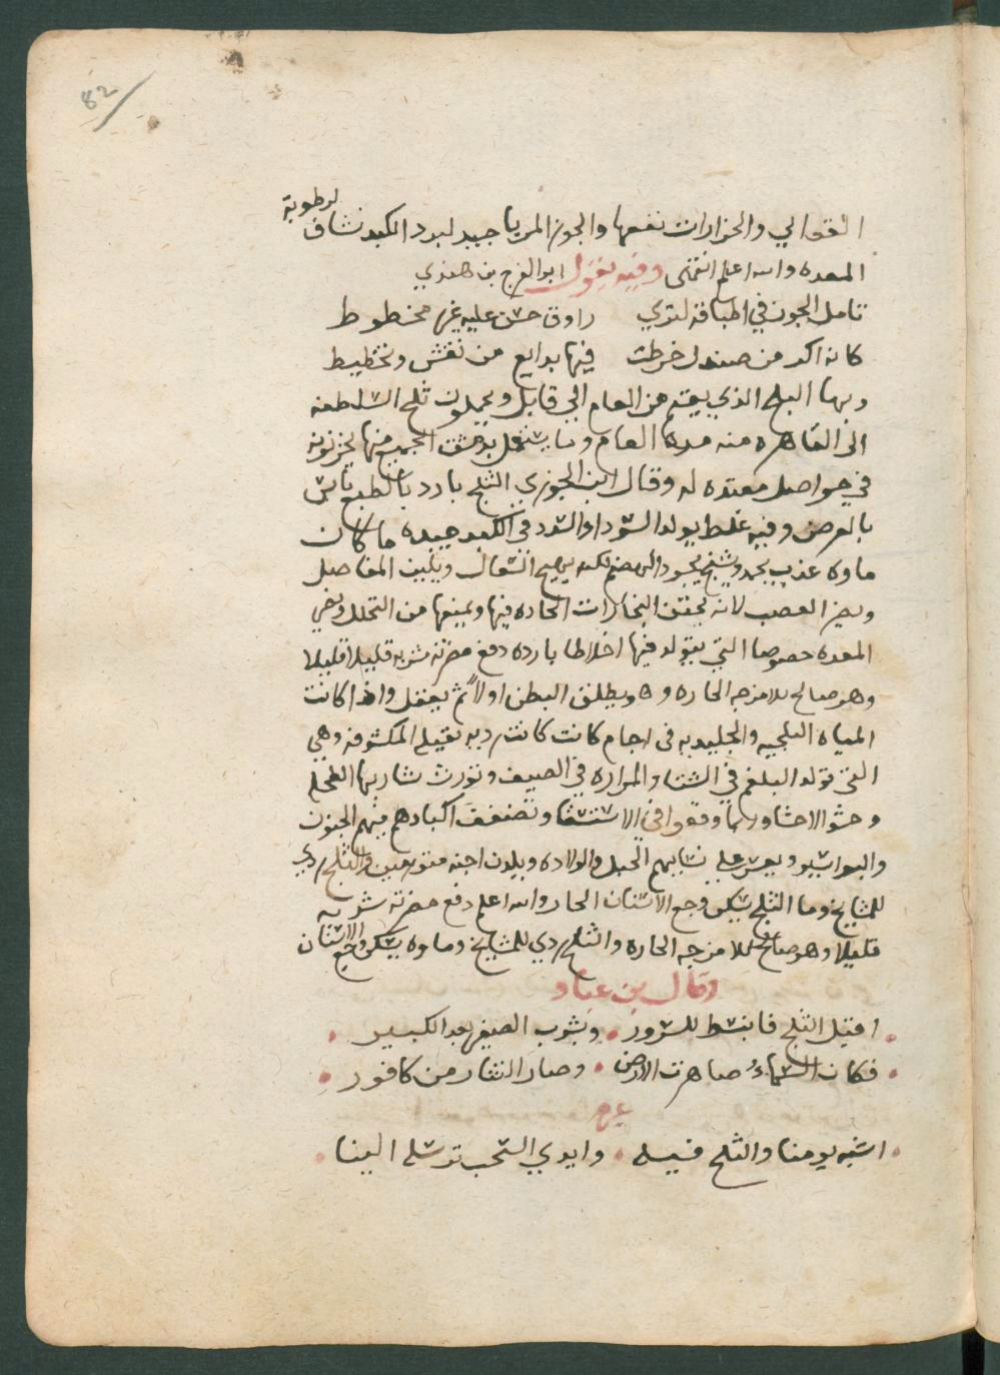 82
القوالي والحزازات نفعها والجوز المربا جيد لبرد الكبد نشاف لرطوبة
المعده والله اعلم انتهى وفيه يقول ابو الفرج بن هندي
تامل الجوز في اطباقه لتري راوق حسن عليه غير مخطوط
كانه اكر من صندل خرطت فيها بدايع من نقش وتخطيط
وبها الثلج الذي يقيم من العام الي قابل ويحملون ثلج السلطنه
الى القاهره منه مدة العام وما يشتمل بدمشق الجميع منها يخزنونه
في حواصل معتده له وقال ابن الجوزي الثلج بارد بالطبع يابس
بالعرض وفيه غلط يولد السودا والسدد في الكبد جيده ما كان
ماوه عذب يجود الهضم لكنه يهيج السعال ويلين المفاصل
ويضر العصب لانه يحقن البخارات الحاره فيها ويمنعها من التحلل ويرخي
المعده خصوصا التي يتولد فيها اخلاطا بارده دفع مضرته شربه قليلا قليلا
وهو صالح للامزجه الحاره وهو يطلق البطن اولا ثم يعقل واذا كانت
المياه الثلجيه والجليديه في اجام كانت كانت رديه ثقيله المكشوفه وهي
التي تولد البلغم في الشتا والمراره في الصيف وتورث شاربها الطحال
وحشو الاحشا وربما وقعوا في الاستسقا وتضعف اكبادهم فيهم الجنون
والبواسير ويعسر علي نسايهم الحبل والولاده ويلدن اجنه متورمين والثلج ردي
للمشايخ وما الثلج يسكن وجع الاسنان الحار والله اعلم دفع مضرته شربه
قليلا وهو صالح للامزجه الحاره والثلج ردي للمشايخ وماوه يسكن وجع الاسنان
وقال بن عباد
اقبل الثلج فانبسط للسرور وبشرب الصغير بعد الكبير
فكان السماء صاهرت الارض وصار النثار من كافور
غيره
اشبه يومنا والثلج فيه وايدي السحب ترسله الينا